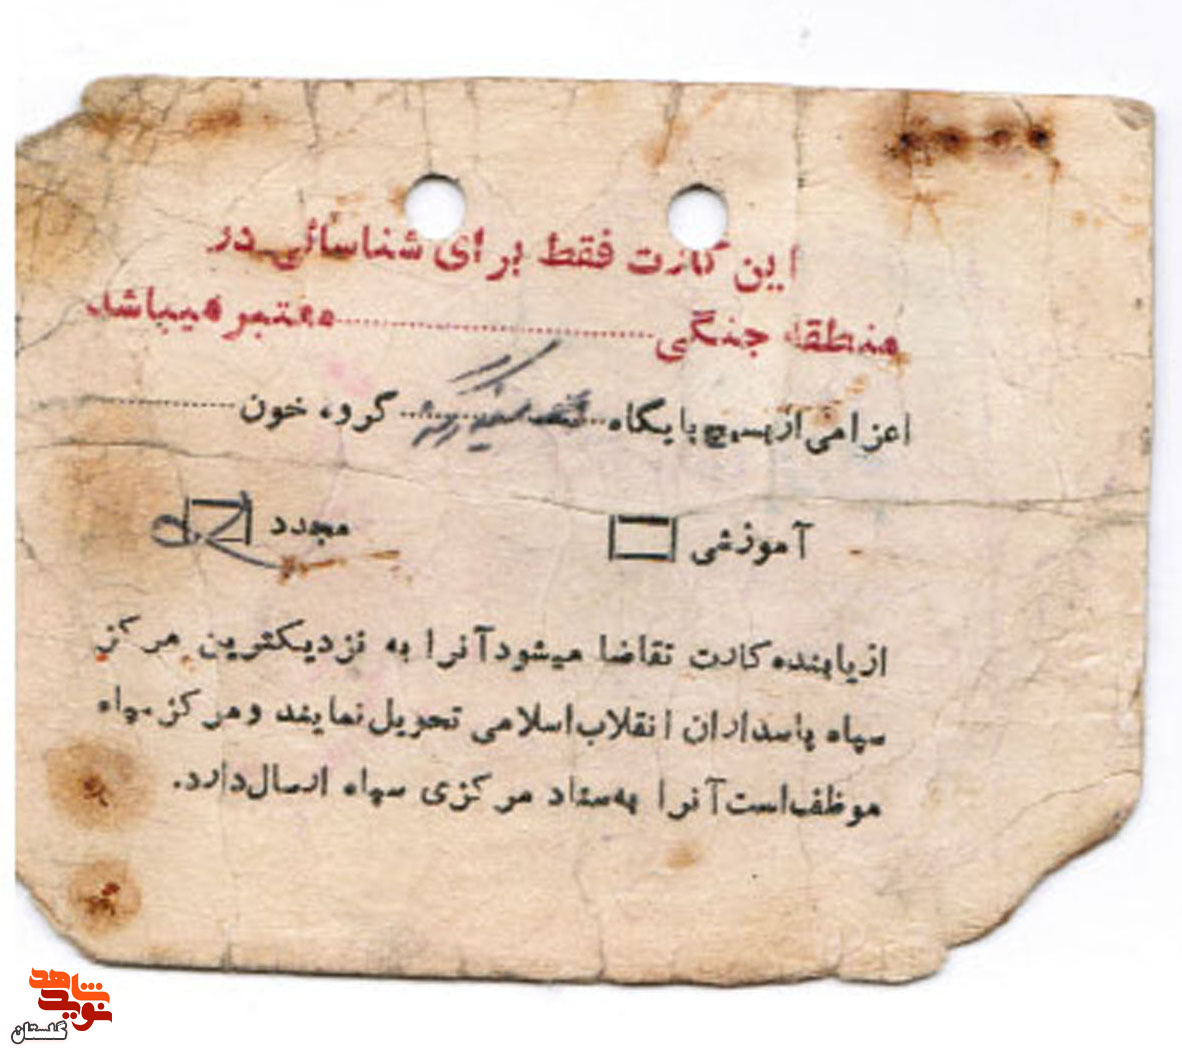 این کارت فقط برای شناسائی در
منطقه جنگی .................... معتبر میباشد
اعزامی از بسیج پایگاه .................... گروه خون ..............
آموزشی مجدد
از یابنده کارت تقاضا میشود آنرا به نزدیکترین مرکز
سپاه پاسداران انقلاب اسلامی تحویل نمایند و مرکز سپاه
موظف است آنرا به ستاد مرکزی سپاه ارسال دارد.
نوید شاهد
گلستان